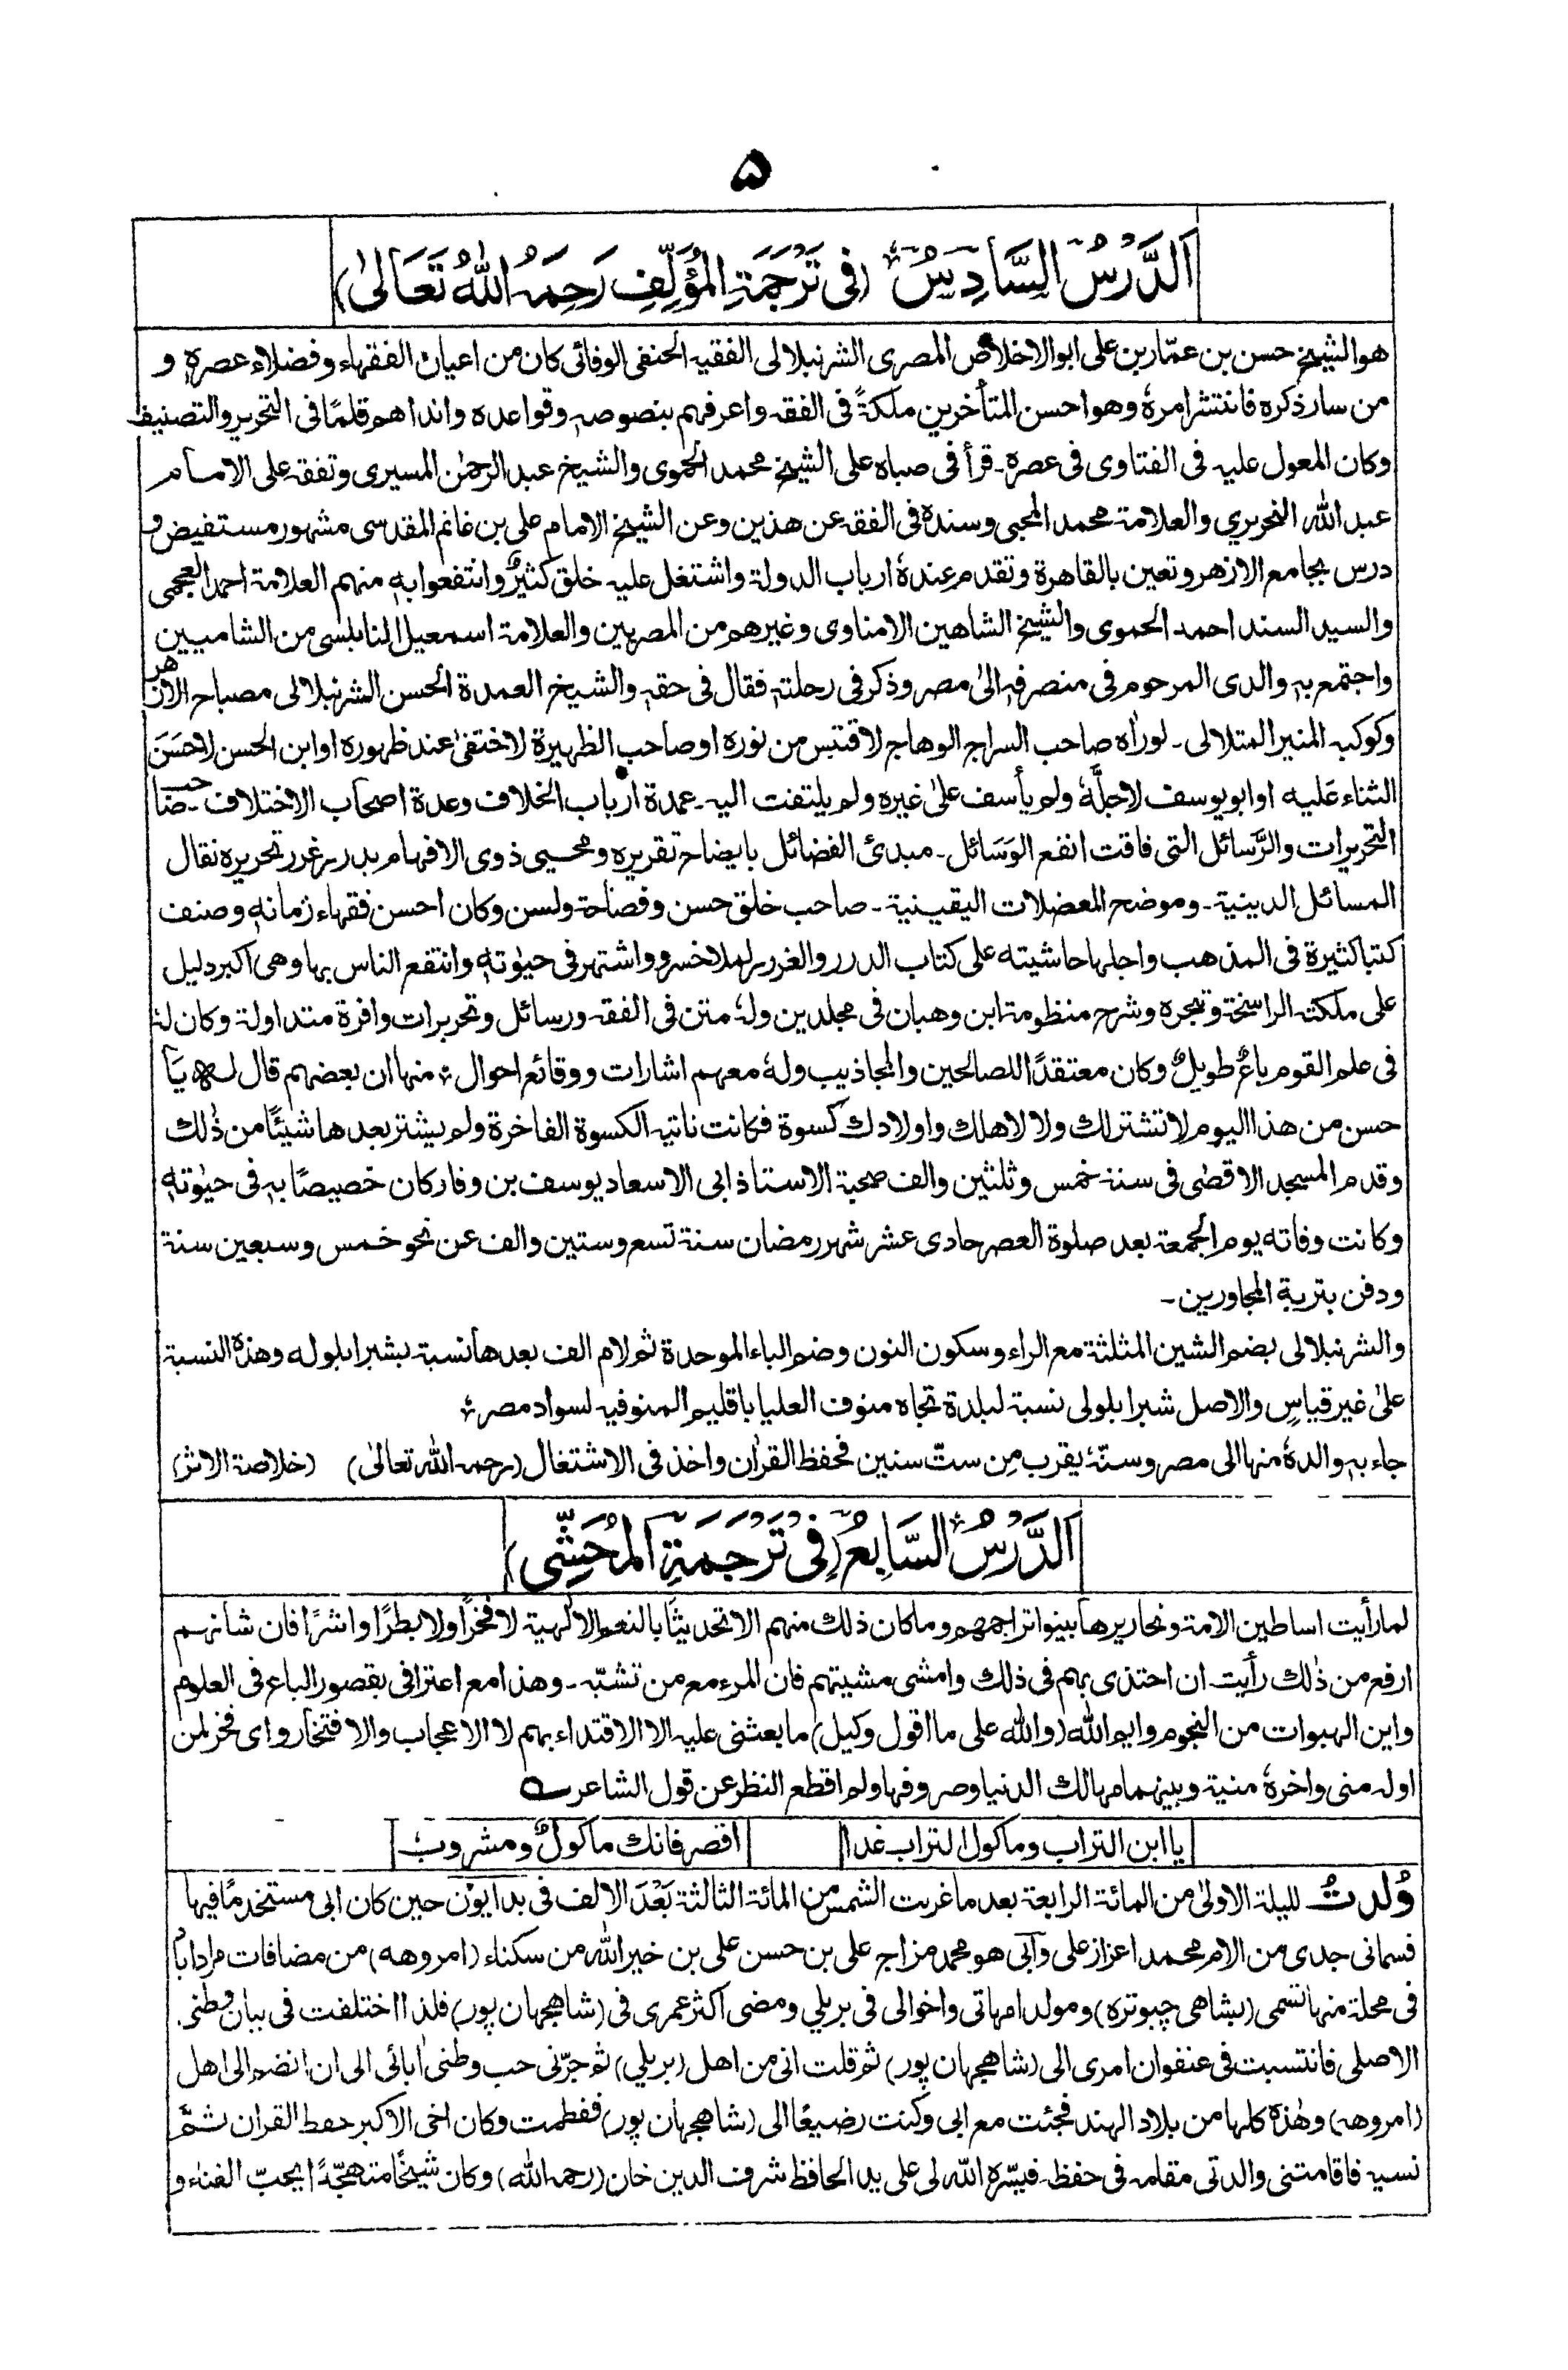 ۵
اَلدَّرْسُ السَّادِسُ (فِی تَرْجَمَةِ الْمُؤَلِّفِ رَحِمَهُ اللهُ تَعَالیٰ)
هو الشیخ حسن بن عمّار بن علی ابو الاخلاص المصری الشرنبلالی الفقیه الحنفی الوفائی کان من اعیان الفقهاء وفضلاء عصره و
من سار ذکره فانتشر امرهٗ وهو احسن المتأخرین ملکةً فی الفقه واعرفهم بنصوصه وقواعده وانداهم قلمًا فی التحریر والتصنیف
وکان المعول علیه فی الفتاوی فی عصره۔ قرأ فی صباه علی الشیخ محمد الحموی والشیخ عبد الرحمٰن المسیری وتفقه علی الامام
عبد الله النحریری والعلامة محمد المحبی وسنده فی الفقه عن هذین وعن الشیخ الامام علی بن غانم المقدسی مشهور مستفیض و
درس بجامع الازهر وتعین بالقاهرة وتقدم عندهٗ ارباب الدولة واشتغل علیه خلق کثیرٌ وانتفعوا به منهم العلامة احمد العجمی
والسید السند احمد الحموی والشیخ الشاهین الامناوی وغیرهم من المصریین والعلامة اسمعیل النابلسی من الشامیین
واجتمع به والدی المرحوم فی منصرفه الیٰ مصر وذکر فی رحلته فقال فی حقه والشیخ العمدة الحسن الشرنبلالی مصباح الازهر
وکوکبه المنیر المتلالی۔ لو رأه صاحب السراج الوهاج لاقتبس من نوره او صاحب الظهیرة لاختفیٰ عند ظهوره او ابن الحسن لاحَسَنَ
الثناء عَلیه او ابو یوسف لاجلَّهٗ ولم یأسف علیٰ غیره ولم یلتفت الیه۔ عمدة ارباب الخلاف وعدة اصحاب الاختلاف۔ صاحب
التحریرات والرَّسائل التی فاقت انفع الوَسَائل۔ مبدئ الفضائل بایضاح تقریره ومحیی ذوی الافهام بدرر غرر تحریره نقال
المسائل الدینیة۔ وموضح المعضلات الیقینیة۔ صاحب خلق حسن وفصاحة ولسن وکان احسن فقهاء زمانه وصنف
کتبا کثیرة فی المذهب واجلها حاشیته علی کتاب الدرر والغرر لملا خسرو واشتهر فی حیٰوته وانتفع الناس بها وهی اکبر دلیل
علی ملکته الراسخة وتبحره وشرح منظومة ابن وهبان فی مجلدین ولهٗ متن فی الفقه ورسائل وتحریرات وافرة متداولة وکان لهٗ
فی علم القوم باعٌ طویلٌ وکان معتقدًا للصالحین والمجاذیب وله معهم اشارات ووقائع احوال ؛ منها ان بعضهم قال له یَا
حسن من هذا الیوم لا تشتر لک ولا لاهلک واولادک کسوة فکانت تاتیه الکسوة الفاخرة ولم یشتر بعدها شیئًا من ذٰلک
وقدم المسجد الاقصٰی فی سنة خمس وثلثین والف صحبة الاستاذ ابی الاسعاد یوسف بن وفا وکان خصیصًا به فی حیٰوته
وکانت وفاته یوم الجمعة بعد صلوة العصر حادی عشر شهر رمضان سنة تسع وستین والف عن نحو خمس وسبعین سنة
ودفن بتربة المجاورین۔
والشرنبلالی بضم الشین المثلثة مع الراء وسکون النون وضم الباء الموحدة ثم لام الف بعدها نسبة بشبرا بلوله وهذه النسبة
علیٰ غیر قیاسٍ والاصل شبرا بلولی نسبة لبلدة تجاه منوف العلیا باقلیم المنوفیه لسواد مصر ؛
جاء به والدهٗ منها الی مصر وسنّهٗ یقرب مِن ستّ سنین فحفظ القرٰان واخذ فی الاشتغال (رحمه الله تعالیٰ) (خلاصة الاثر)
اَلدَّرْسُ السَّابِعُ (فِی تَرْجَمَةِ الْمُحَشِّی)
لما رأیت اساطین الامة ونحاریرها بینوا تراجمهم وما کان ذلک منهم الا تحدیثًا بالنعم الالٰهیة لا فخرًا ولا بطرًا واشرًا فان شانهم
ارفع من ذٰلک رأیت ان احتذی بهم فی ذلک وامشی مشیتهم فان المرء مع من تشبّه۔ وهذا مع اعترافی بقصور الباع فی العلوم
واین الهبوات من النجوم وایم الله (والله علی ما اقول وکیل) ما بعثنی علیه الا الاقتداء بهم لا الاعجاب والافتخار وای فخر لمن
اوله منی واخرهٗ منیة وبینهما مهالک الدنیا وصروفها ولم اقطع النظر عن قول الشاعر
یا ابن التراب وماکول التراب غدا | اقصر فانک ماکولٌ ومشروب
وُلدتُ للیلة الاولیٰ من المائة الرابعة بعد ما غربت الشمس من المائة الثالثة بَعْدَ الالف فی بدایون حین کان ابی مستخدمًا فیها
فسمانی جدی من الام محمد اعزاز علی وآبی هو محمد مزاج علی بن حسن علی بن خیر الله من سکناء (امروهه) من مضافات مراداباد
فی محلة منها تسمی (بشاهی چبوتره) ومولد امهاتی واخوالی فی بریلی ومضی اکثر عمری فی (شاهجهان پور) فلذا اختلفت فی بیان وطنی
الاصلی فانتسبت فی عنفوان امری الی (شاهجهان پور) ثم قلت انی من اهل (بریلی) ثم جرّنی حب وطنی اٰبائی الی ان انضم الی اهل
(امروهه) وهٰذه کلها من بلاد الهند فجئت مع ابی وکنت رضیعًا الی (شاهجهان پور) ففطمت وکان اخی الاکبر حفظ القران ثمَّ
نسیه فاقامتنی والدتی مقامه فی حفظه۔ فیسّره الله لی علی ید الحافظ شرف الدین خان (رحمه الله) وکان شیخًا متهجّدًا یحبّ الفناء و